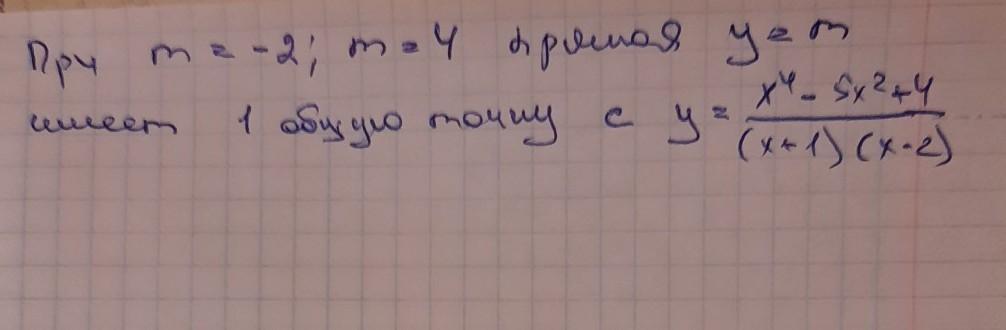 При m = -2; m = 4 прямая y = m
имеет 1 общую точку с y = x⁴ - 5x² + 4 / (x + 1) (x - 2)